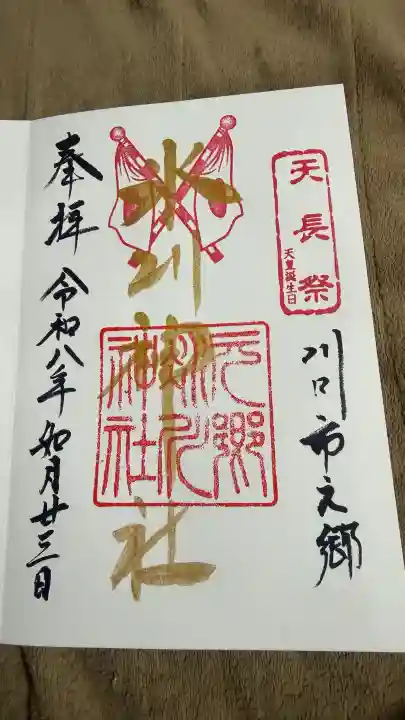 天長祭
天皇誕生日
川口市元郷
氷川神社
元郷
氷川
神社
奉拝
令和八年如月廿三日